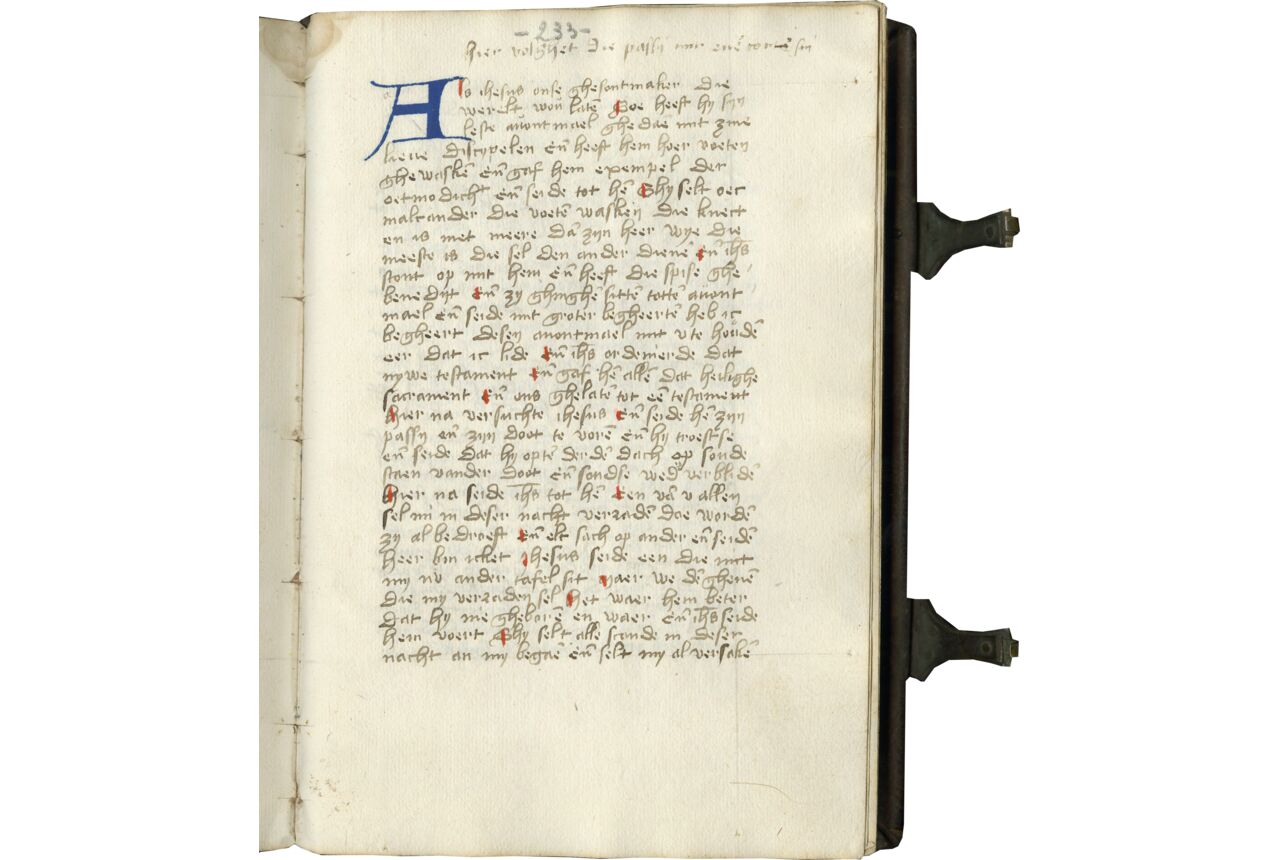 -233-
hier volghet die passy mit
Als ihesus onse ghesontmaker die
werelt wou latē Doe heeft hy sijn
leste auontmael ghedaē mit zine
lieue discypelen eñ heeft hem heer voeten
ghewaskē eñ gaf hem exempel der
oetmodich̄t eñ seide tot hē Ghy selt oec
malcander die voetē wasken die knect
en is niet meere dā zijn heer wye die
meeste is die sel den ander dienē eñ ih̄s
stont op mit hem eñ heeft die spise ghe
benedijt eñ zy ghinghē sittē tottē auont
mael eñ seide mit groter begheertē heb ic
begheert desen auontmael mit v te houdē
eer dat ic lide eñ ih̄s ordenierde dat
nywe testament eñ gaf hē allē dat heilighe
sacrament eñ ons ghelatē tot eē testament
hier na versuchte ihesus eñ seide hē zijn
passy eñ zijn doot te vorē eñ hy troestse
eñ seide dat hy optē derdē dach op soude
staen vander doot eñ soudse wed̄ verblidē
hier na seide ih̄s tot hē Een vā v allen
sel mi in deser nacht verradē doe wordē
zy al bedroeft eñ elt sach op ander eñ seidē
heer bin icket ihesus seide een die mit
my nv ander tafel sit Maer we dē ghenē
die my verraden sel Het waer hem beter
dat hy nie gheborē en waer eñ ih̄s seide
hem voert Ghy selt alle scande in deser
nacht an my begaē eñ selt my al versakē